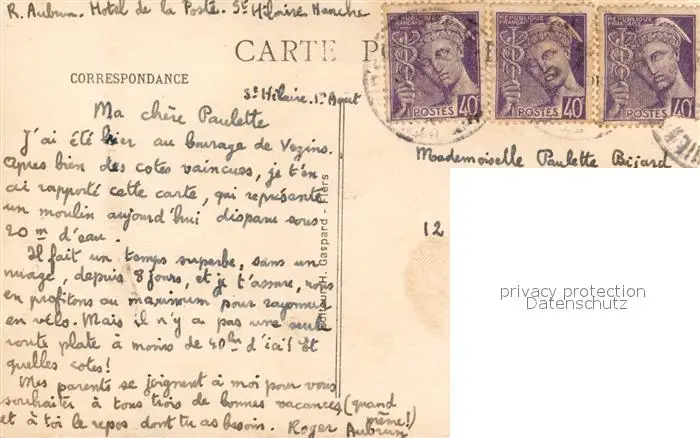 R. Aubrun. Hotel de la Poste. St Hilaire Manche
CARTE PO
CORRESPONDANCE
St Hilaire. 1er Aout
Ma chère Paulette
J'ai été hier au barrage de Vezins.
Après bien des cotes vaincues, je t'en
ai rapporté cette carte, qui représente
un moulin aujourd'hui disparu sous
20 m d'eau.
Il fait un temps superbe, sans un
nuage, depuis 8 jours, et je t'assure, nous
en profitons au maximum pour rayonner
en vélo. Mais il n'y a pas une seule
route plate à moins de 40 km d'ici! Et
quelles cotes!
Mes parents se joignent à moi pour vous
souhaiter à tous trois de bonnes vacances (quand
même!)
et à toi le repos dont tu as besoin. Roger
Aubrun
Editeur H. Gaspard - Flers
REPUBLIQUE FRANÇAISE
POSTES 40c
REPUBLIQUE FRANÇAISE
POSTES 40c
REPUBLIQUE FRANÇAISE
POSTES 40c
Mademoiselle Paulette Bijard
12
privacy protection
Datenschutz